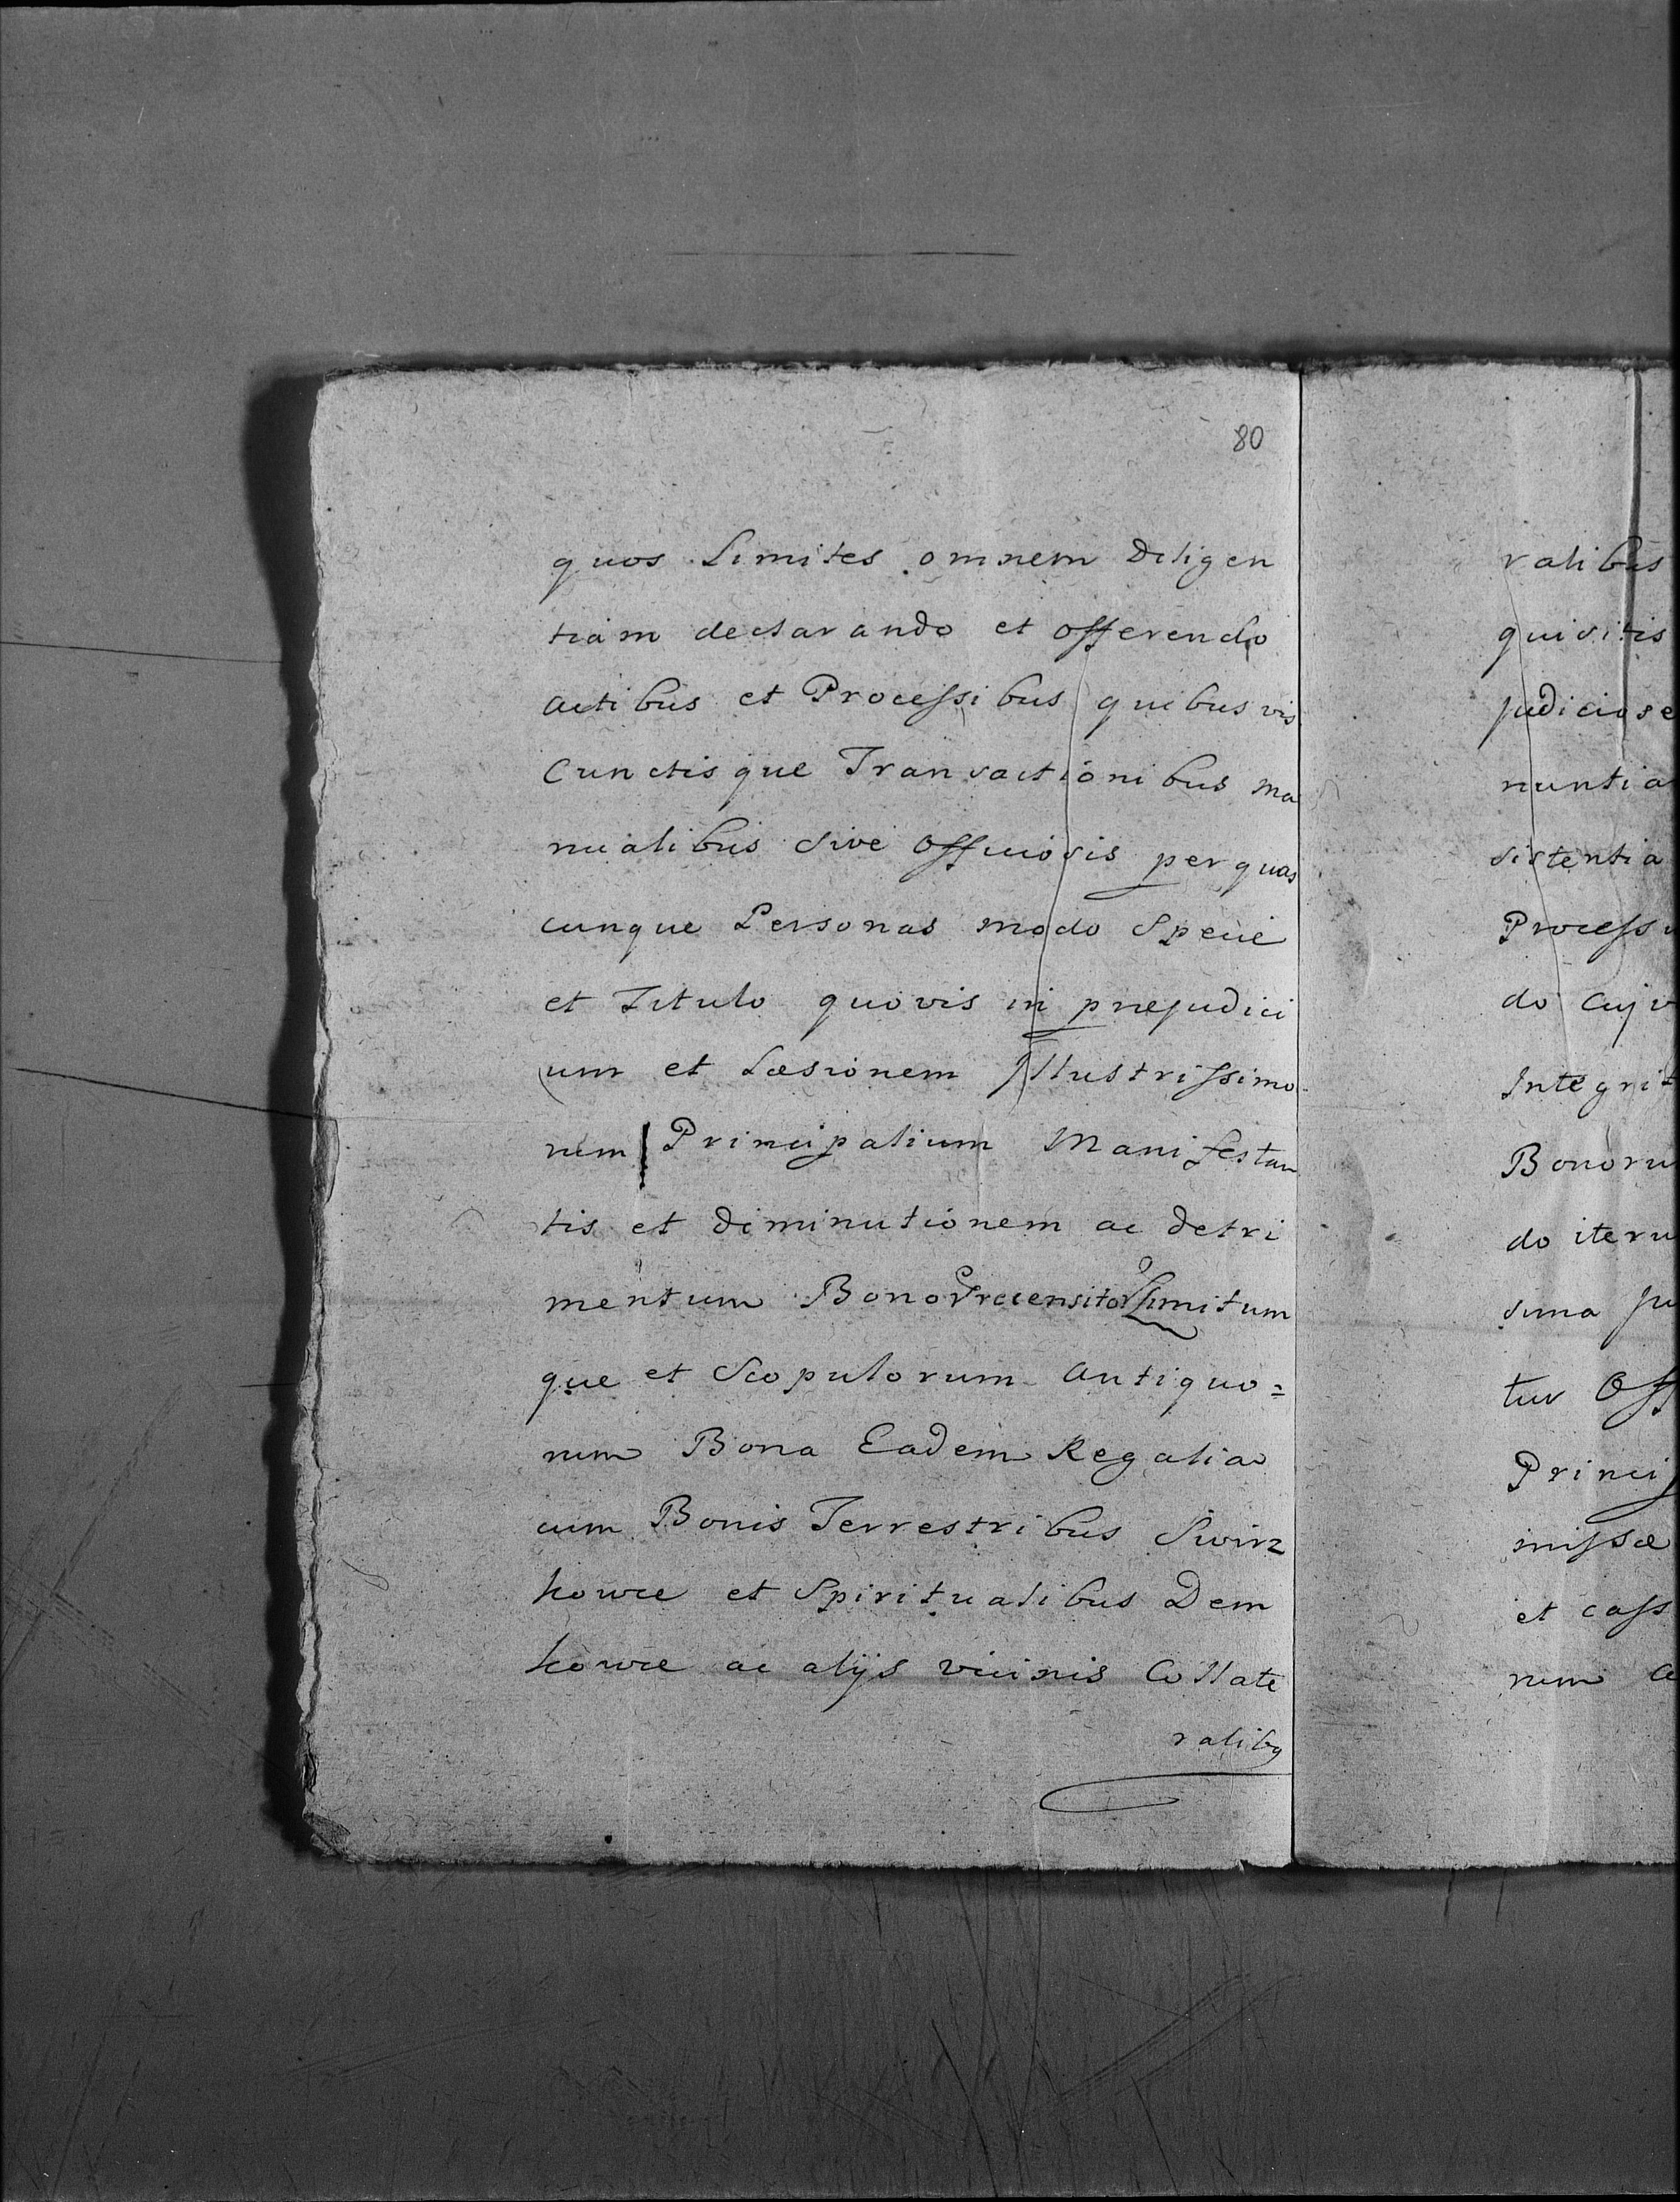 80
quos Limites omnem Diligen
tiam declarando et offerendo
actibus et Processibus quibusvis
Cunctisque Transactionibus ma
nualibus sive Officiosis per quas
cunque Personas modo Specie
et Titulo quovis in præjudici
um et Læsionem Illustrissimo
rum Principalium Manifestan
tis et Diminutionem ac Detri
mentum Bonor Recensitor Limitum
que et Scopulorum antiquo=
rum Bona Eadem Regalia
cum Bonis Terrestribus Swirz
kowce et Spiritualibus Dem
kowce ac alijs vicinis Collate
ralibq
ralibus
quisitis
judiciose
nuntia
sistentia
Processu
do Cujv
Integrit
Bonoru
do iteru
suma pu
tur Off
Princip
missæ
et cass
rum